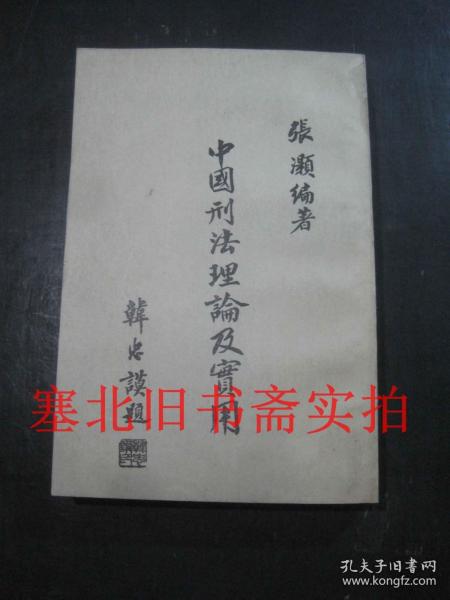 張灝編著
中國刑法理論及實用
韓忠謨題
塞北旧书斋实拍
孔夫子旧书网
www.kongfz.com